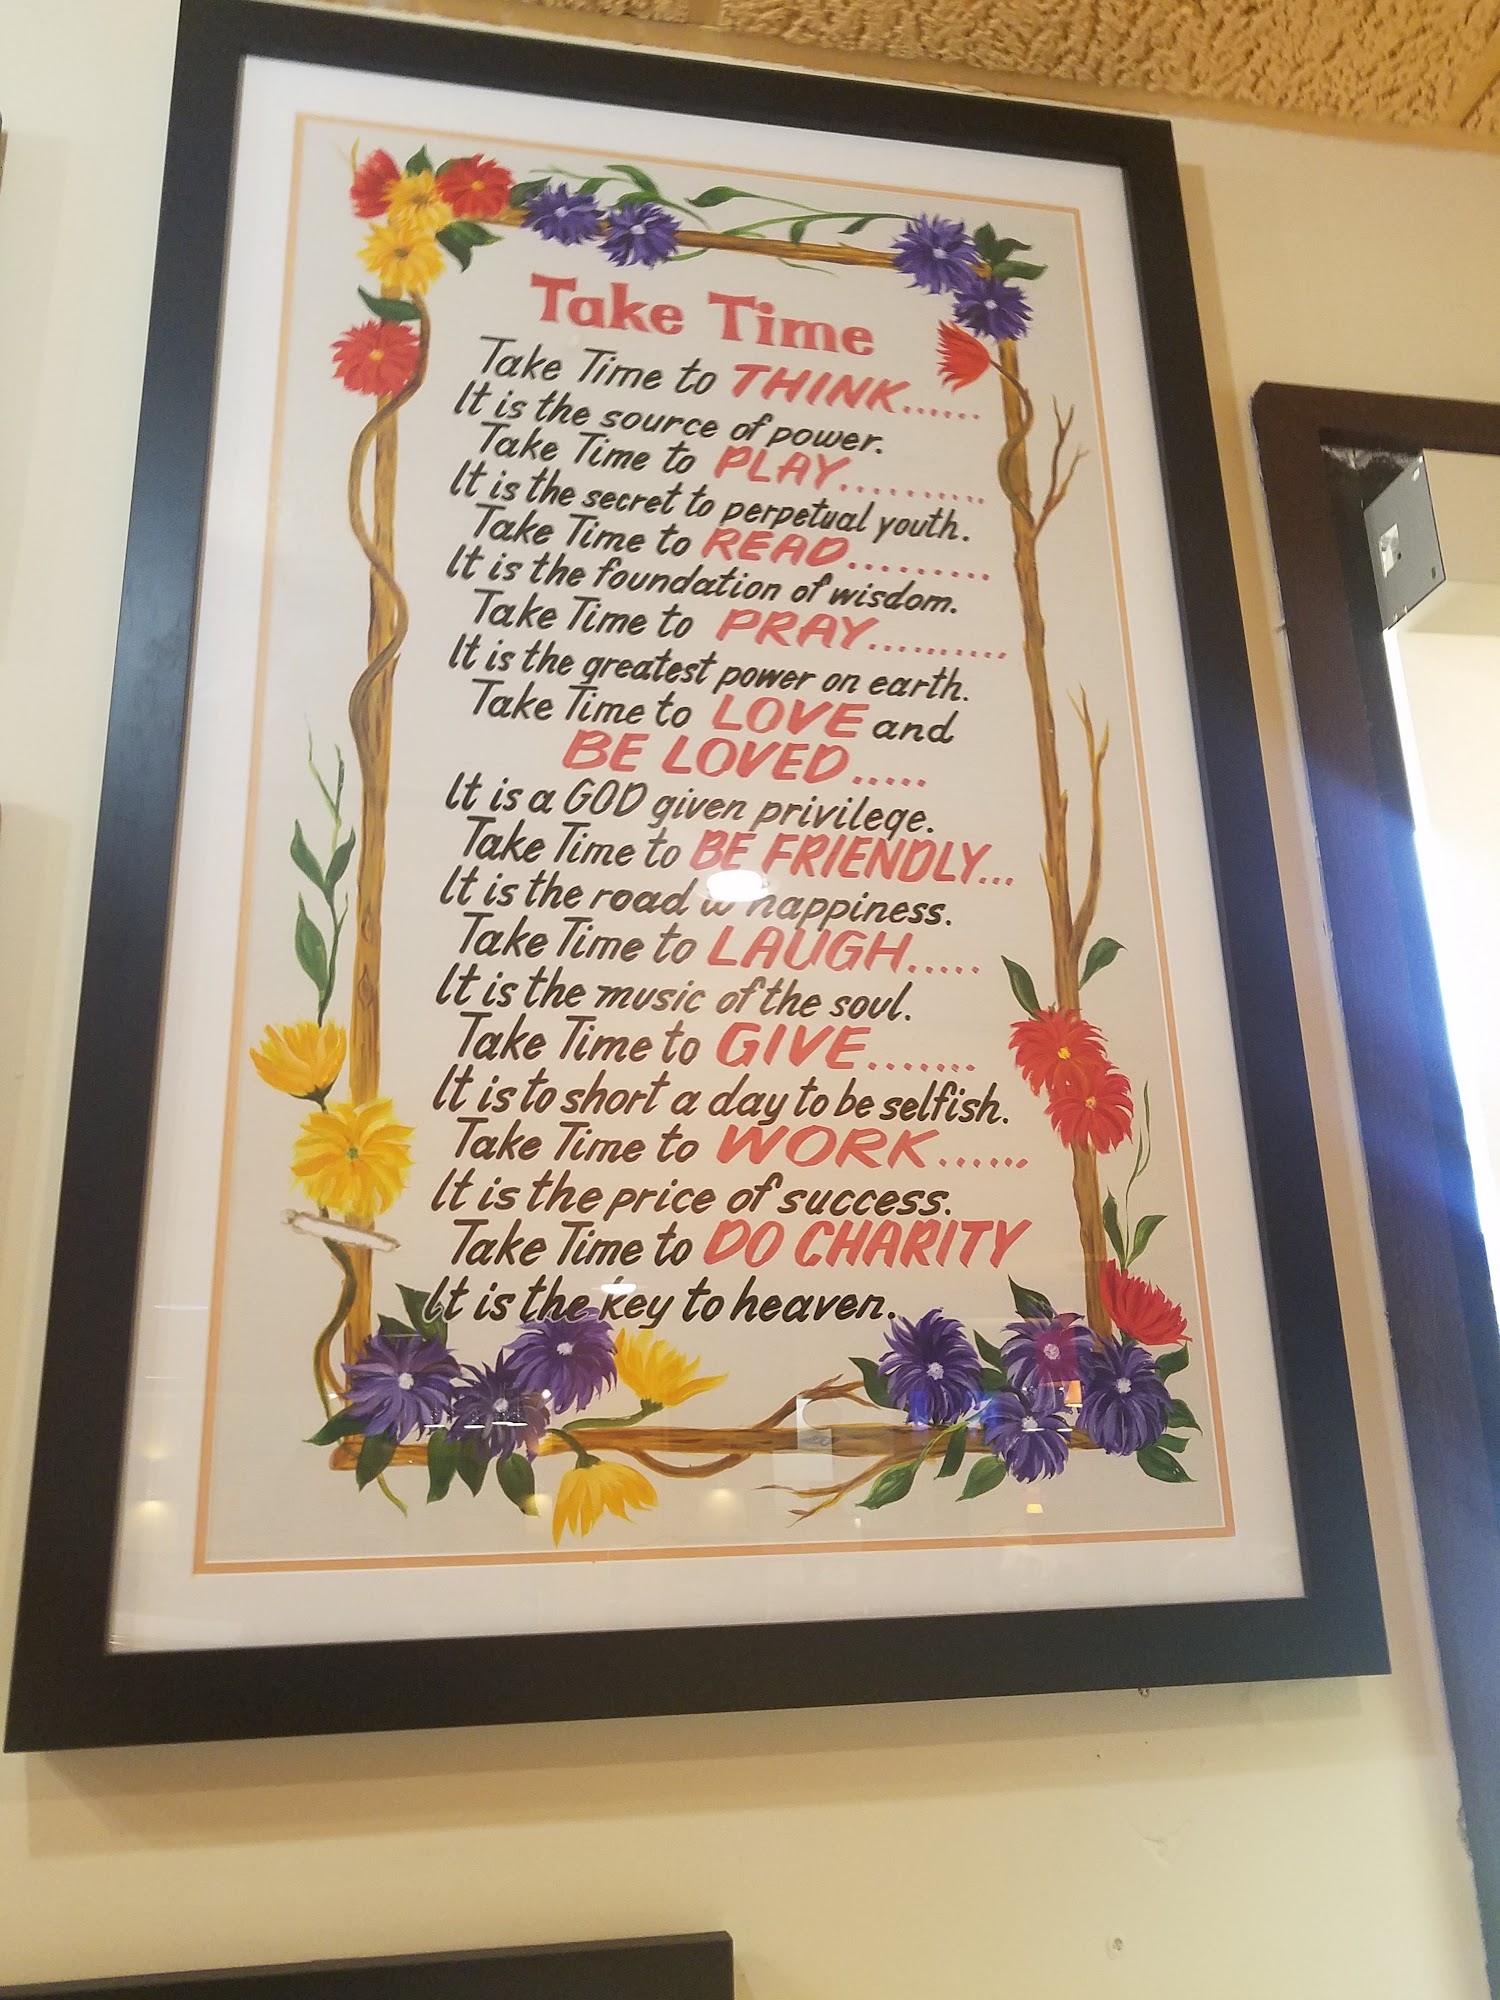 Take Time
Take Time to THINK......
It is the source of power.
Take Time to PLAY...........
It is the secret to perpetual youth.
Take Time to READ.........
It is the foundation of wisdom.
Take Time to PRAY..........
It is the greatest power on earth.
Take Time to LOVE and
BE LOVED.....
It is a GOD given privilege.
Take Time to BE FRIENDLY...
It is the road to happiness.
Take Time to LAUGH.....
It is the music of the soul.
Take Time to GIVE.......
It is to short a day to be selfish.
Take Time to WORK......
It is the price of success.
Take Time to DO CHARITY
It is the key to heaven.